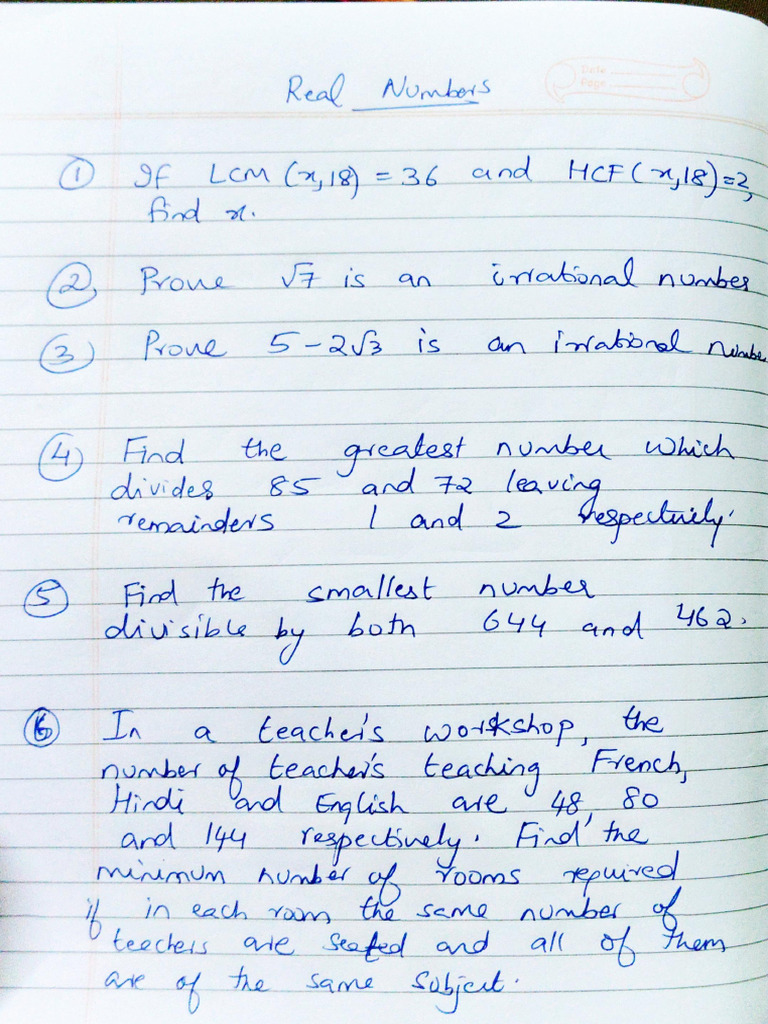 Date
Page
Real Numbers
① If LCM (x,18) = 36 and HCF(x,18)=2,
find x.
②, Prove √7 is an irrational number
③ Prove 5-2√3 is an irrational number
④ Find the greatest number which
divides 85 and 72 leaving
remainders 1 and 2 respectively.
⑤ Find the smallest number
divisible by both 644 and 462.
⑥ In a teacher's workshop, the
number of teacher's teaching French,
Hindi and English are 48, 80
and 144 respectively. Find the
minimum number of rooms required
if in each room the same number of
teechers are seated and all of them
are of the same subject.